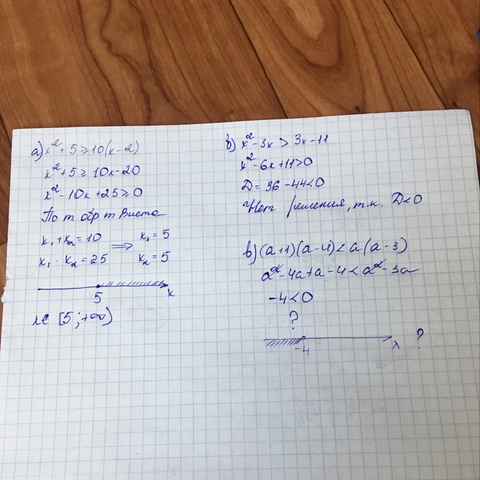 а) x² + 5 ≥ 10(x - 2)
x² + 5 ≥ 10x - 20
x² - 10x + 25 ≥ 0
По т обр т Виета
x₁ + x₂ = 10 ⟹ x₁ = 5
x₁ · x₂ = 25 x₂ = 5
5 x
x ∈ [5; +∞)
б) x² - 3x > 3x - 11
x² - 6x + 11 > 0
D = 36 - 44 < 0
Нет решения, т.к. D < 0
в) (a + 1)(a - 4) < a(a - 3)
a² - 4a + a - 4 < a² - 3a
-4 < 0
?
-4 x ?